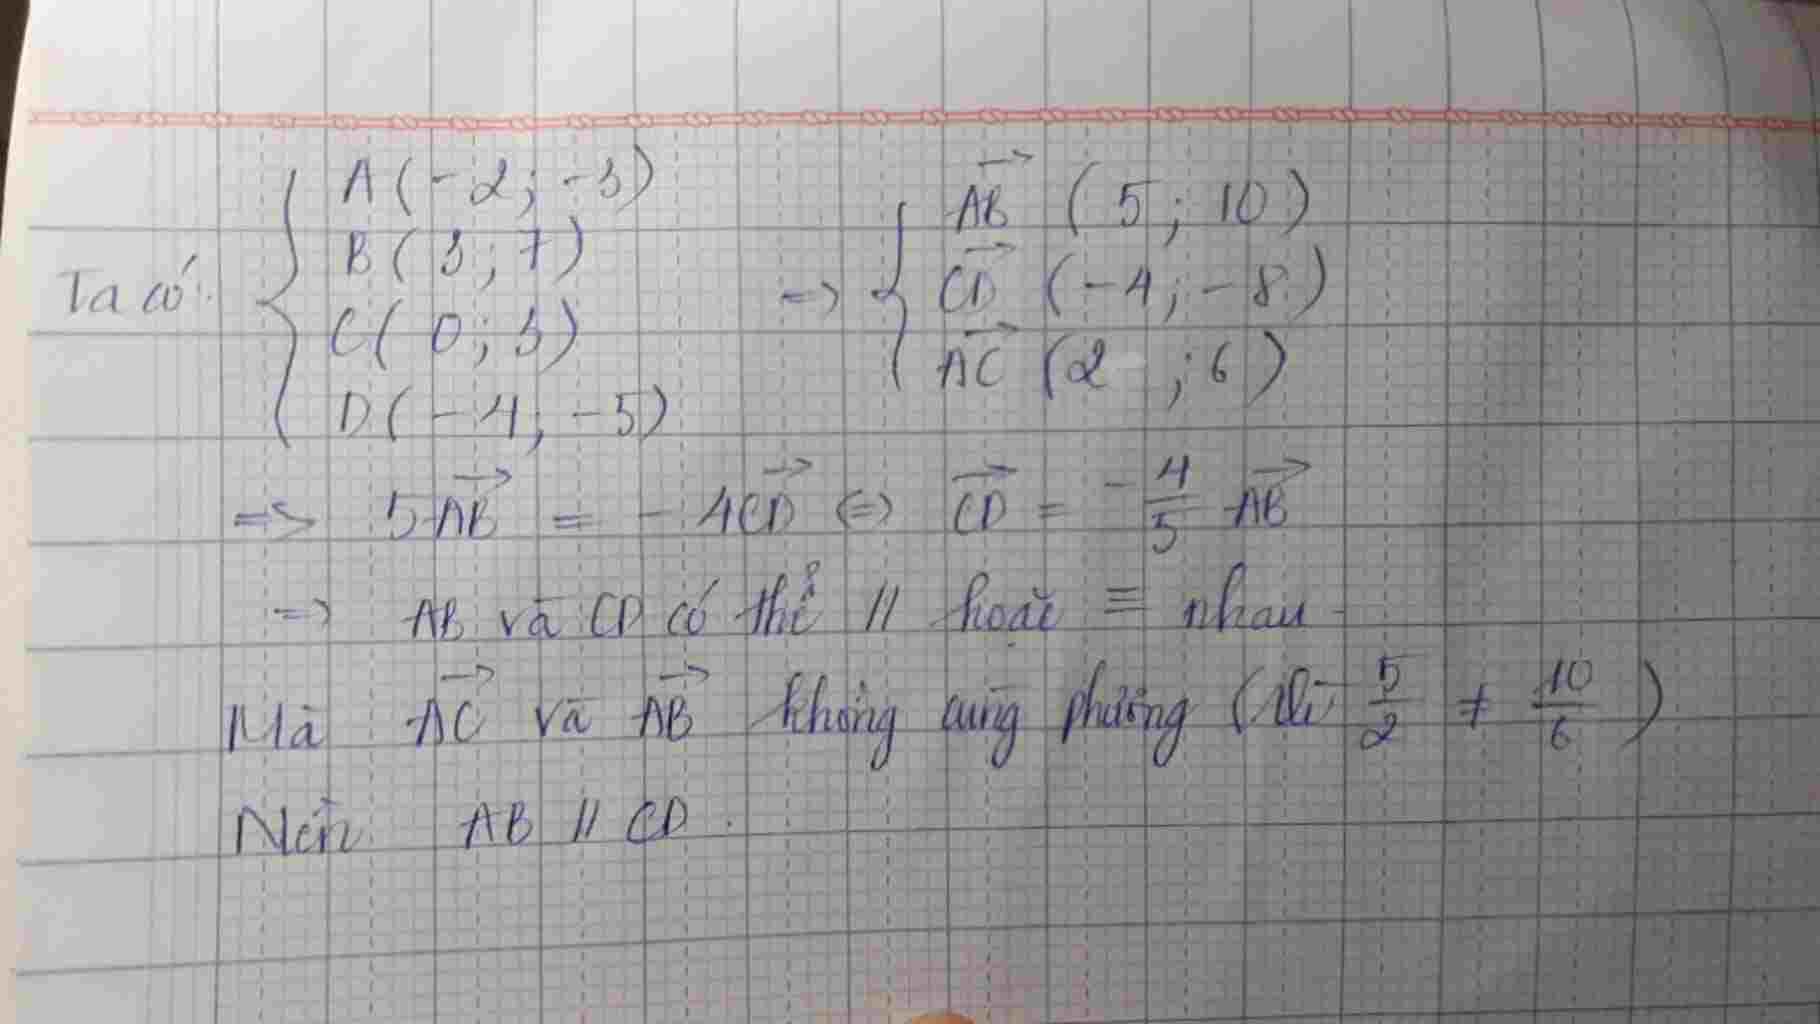 Ta có: { A(-2; -3) B(3; 7) C(0; 3) D(-4; -5) => { AB→ (5; 10) CD→ (-4; -8) AC→ (2 ; 6)
=> 5AB→ = -4CD→ <=> CD→ = -4/5 AB→
=> AB và CD có thể // hoặc ≡ nhau
Mà AC→ và AB→ không cùng phương (Vì 5/2 ≠ 10/6)
Nên AB // CD.